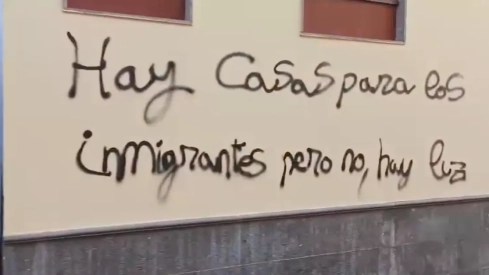 Hay Casas para los
inmigrantes pero no, hay luz